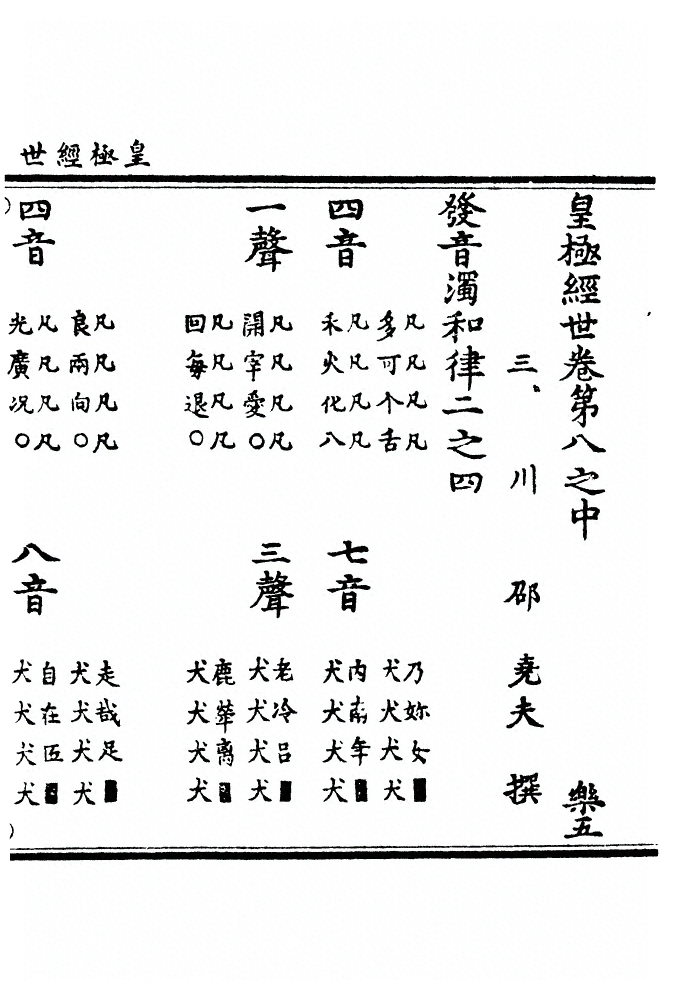 皇極經世
皇極經世卷第八之中 樂五
三川 邵堯夫 撰
發音濁和律二之四
四音
凡凡凡凡
多可个舌
凡凡凡凡
禾火化八
七音
乃妳女■
犬犬犬犬
內南年■
犬犬犬犬
一聲
凡凡凡凡
開宰愛○
凡凡凡凡
回每退○
三聲
老冷呂■
犬犬犬犬
鹿犖离■
犬犬犬犬
四音
凡凡凡凡
良兩向○
凡凡凡凡
光廣况○
八音
走哉足■
犬犬犬犬
自在匹■
犬犬犬犬